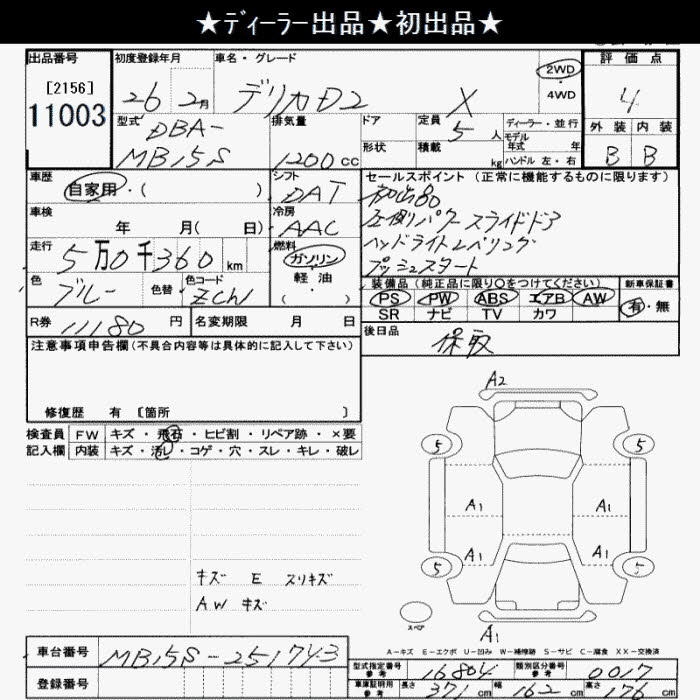 ★ﾃﾞｨｰﾗｰ出品★初出品★
出品番号
[2156]
11003
初度登録年月
26 2月
車名・グレード
デリカD2 X
2WD
4WD
評価点
4
外装 内装
B B
型式
DBA-
MB15S
排気量
1200cc
ドア
形状
定員 5人
積載 kg
ディーラー・並行
モデル
年式 年
ハンドル 左・右
車歴
自家用・( )
シフト
DAT
車検
年 月( 日)
冷房
AAC
走行
5万0千360km
燃料
ガソリン
軽・油
・( )
色
ブルー
色替
色コード
ZCW
R券 11180円
名変期限 月 日
セールスポイント(正常に機能するものに限ります)
初出品
左側パワースライドドア
ヘッドライトレベリング
プッシュスタート
装備品(純正品に限り○をつけてください)
PS PW ABS エアB AW
SR ナビ TV カワ
新車保証書
有・無
後日品
保取
注意事項申告欄(不具合内容等は具体的に記入して下さい)
修復歴 有 〔箇所 〕
検査員 FW キズ・飛石・ヒビ割・リペア跡・×要
記入欄 内装 キズ・汚レ・コゲ・穴・スレ・キレ・破レ
キズ E スリキズ
AW キズ
A2
5 5
A1 A1
A1 A1
5 5
スペア
A1
A-キズ E-エクボ U-凹み W-補修跡 S-サビ C-腐食 XX-交換済
車台番号 MB15S-251743
登録番号
型式指定番号 参考 16804
類別区分番号 参考 0017
車庫証明用 参考
長さ 371cm 幅 162cm 高さ 176cm